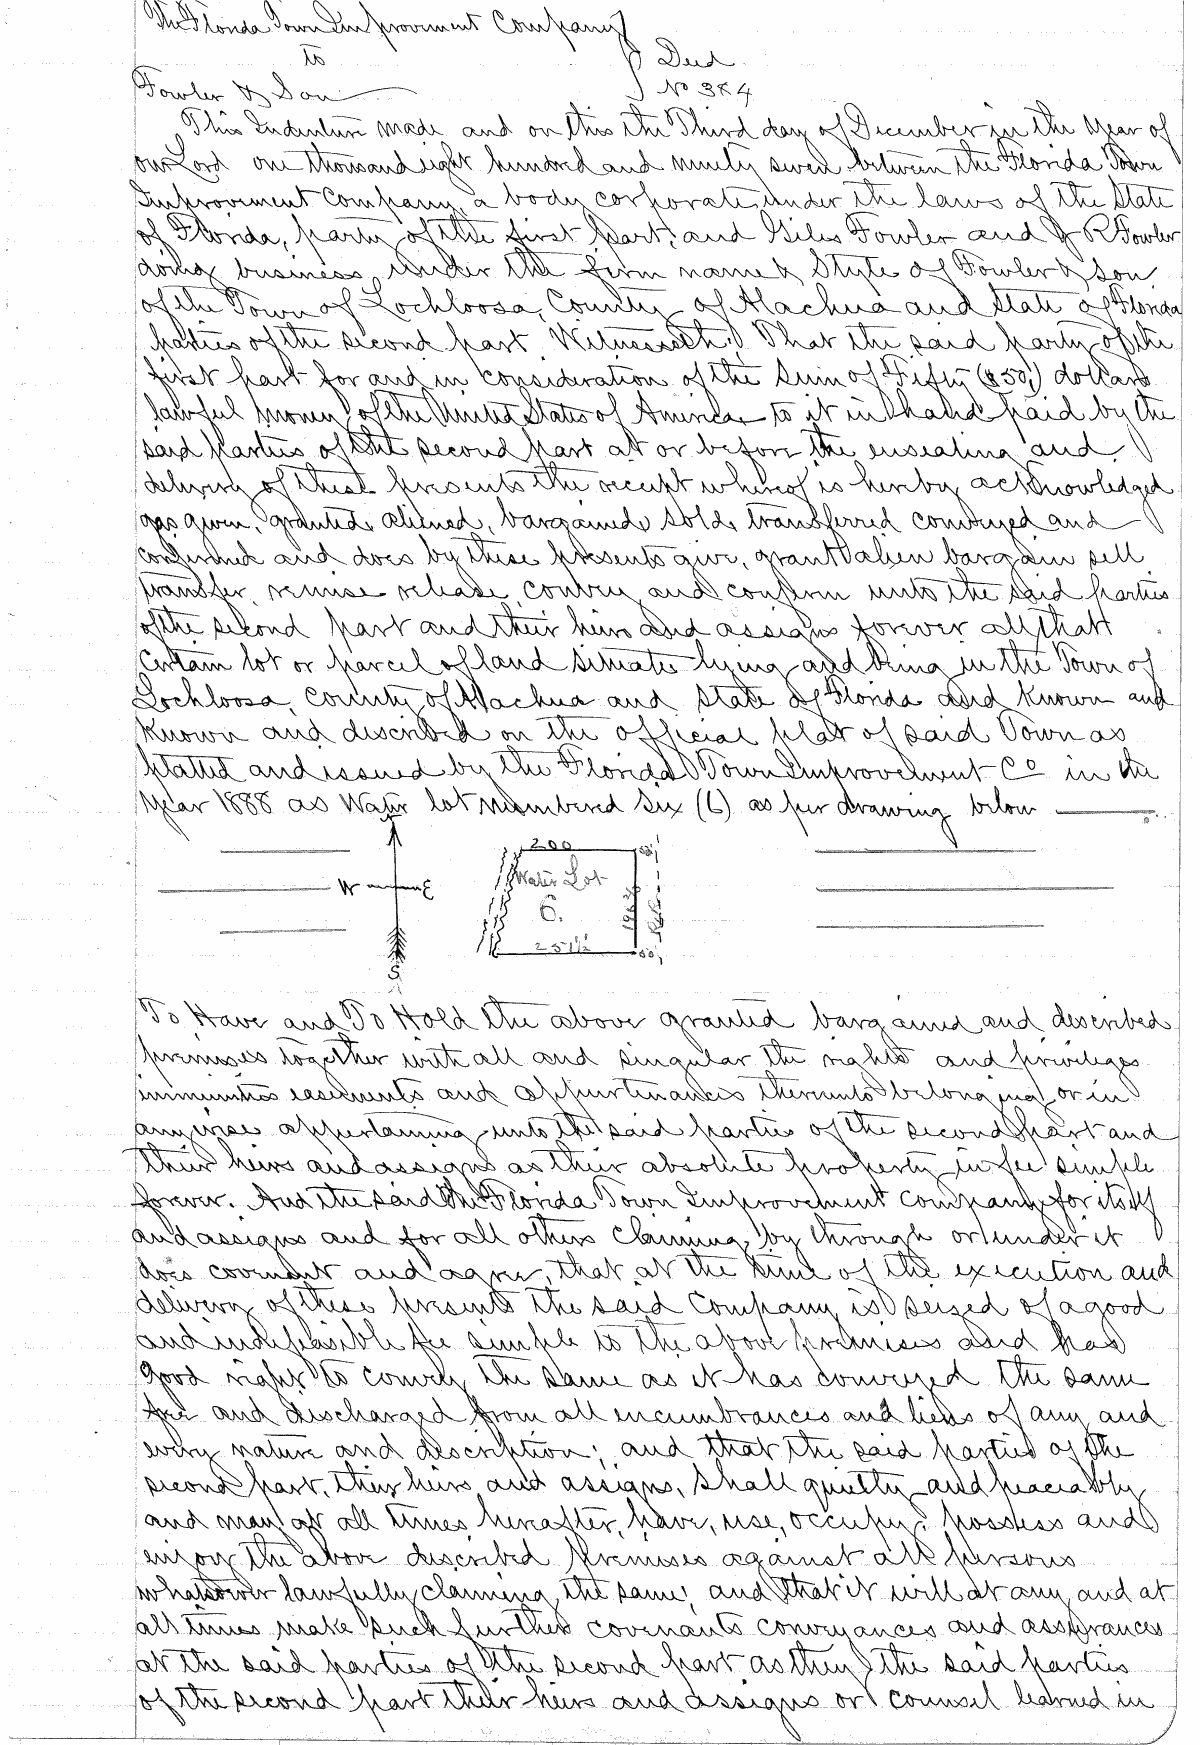 The Florida Town Improvement Company
to
Deed
Fowler & Son
No 384
This Indenture made and on this the Third day of December in the Year of
our Lord one thousand eight hundred and ninety seven between the Florida Town
Improvement Company, a body corporate under the laws of the State
of Florida, party of the first part, and Giles Fowler and J R Fowler
doing business under the firm name & Style of Fowler & Son
of the Town of Lochloosa, County of Alachua and State of Florida
parties of the second part. Witnesseth, That the said party of the
first part for and in consideration of the Sum of Fifty ($50,) dollars
lawful money of the United States of America to it in hand paid by the
said parties of the second part at or before the ensealing and
delivery of these presents the receipt whereof is hereby acknowledged
has given, granted, aliened, bargained, sold, transferred conveyed and
confirmed and does by these presents give, grant alien bargain sell
transfer, remise release, convey and confirm unto the said parties
of the second part and their heirs and assigns forever all that
Certain lot or parcel of land situate lying and being in the Town of
Lochloosa, County of Alachua and State of Florida and known and
known and described on the official plat of said Town as
platted and issued by the Florida Town Improvement Co in the
Year 1888 as Water lot numbered Six (6) as per drawing below
200
W E
Water Lot
6.
251½
S
To Have and To Hold the above granted bargained and described
premises together with all and singular the rights and privileges
immunities easements and appurtenances thereunto belonging or in
anywise appertaining unto the said parties of the second part and
their heirs and assigns as their absolute property in fee simple
forever. And the said the Florida Town Improvement Company for itself
and assigns and for all others claiming by through or under it
does covenant and agree, that at the time of the execution and
delivery of these presents the said Company is seized of a good
and indefeasible fee simple to the above premises and has
good right to convey the same as it has conveyed the same
free and discharged from all encumbrances and liens of any and
every nature and description; and that the said parties of the
second part, their heirs and assigns, shall quietly and peaceably
and may at all times hereafter, have, use, occupy, possess and
enjoy the above described premises against all persons
whatsoever lawfully claiming the same, and that it will at any and at
all times make such further covenants conveyances and assurances
at the said parties of the second part as they the said parties
of the second part their heirs and assigns or counsel learned in